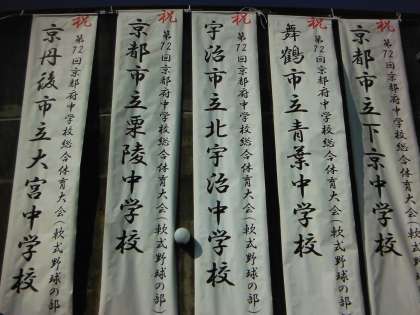 祝
第72回京都府中学校総合体育大会(軟式野球の部)
京都市立下京中学校
祝
第72回京都府中学校総合体育大会(軟式野球の部)
舞鶴市立青葉中学校
祝
第72回京都府中学校総合体育大会(軟式野球の部)
宇治市立北宇治中学校
祝
第72回京都府中学校総合体育大会(軟式野球の部)
京都市立栗陵中学校
祝
第72回京都府中学校総合体育大会(軟式野球の部)
京丹後市立大宮中学校